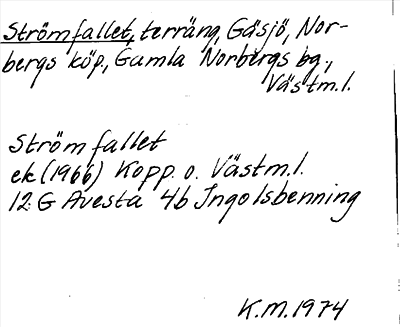 Strömfallet, terräng, Gäsjö, Nor-
bergs köp., Gamla Norbergs bg.,
Västm.l.
Strömfallet
ek (1966) Kopp. o. Västm.l.
12 G Avesta 4b Ingolsbenning
K.M. 1974